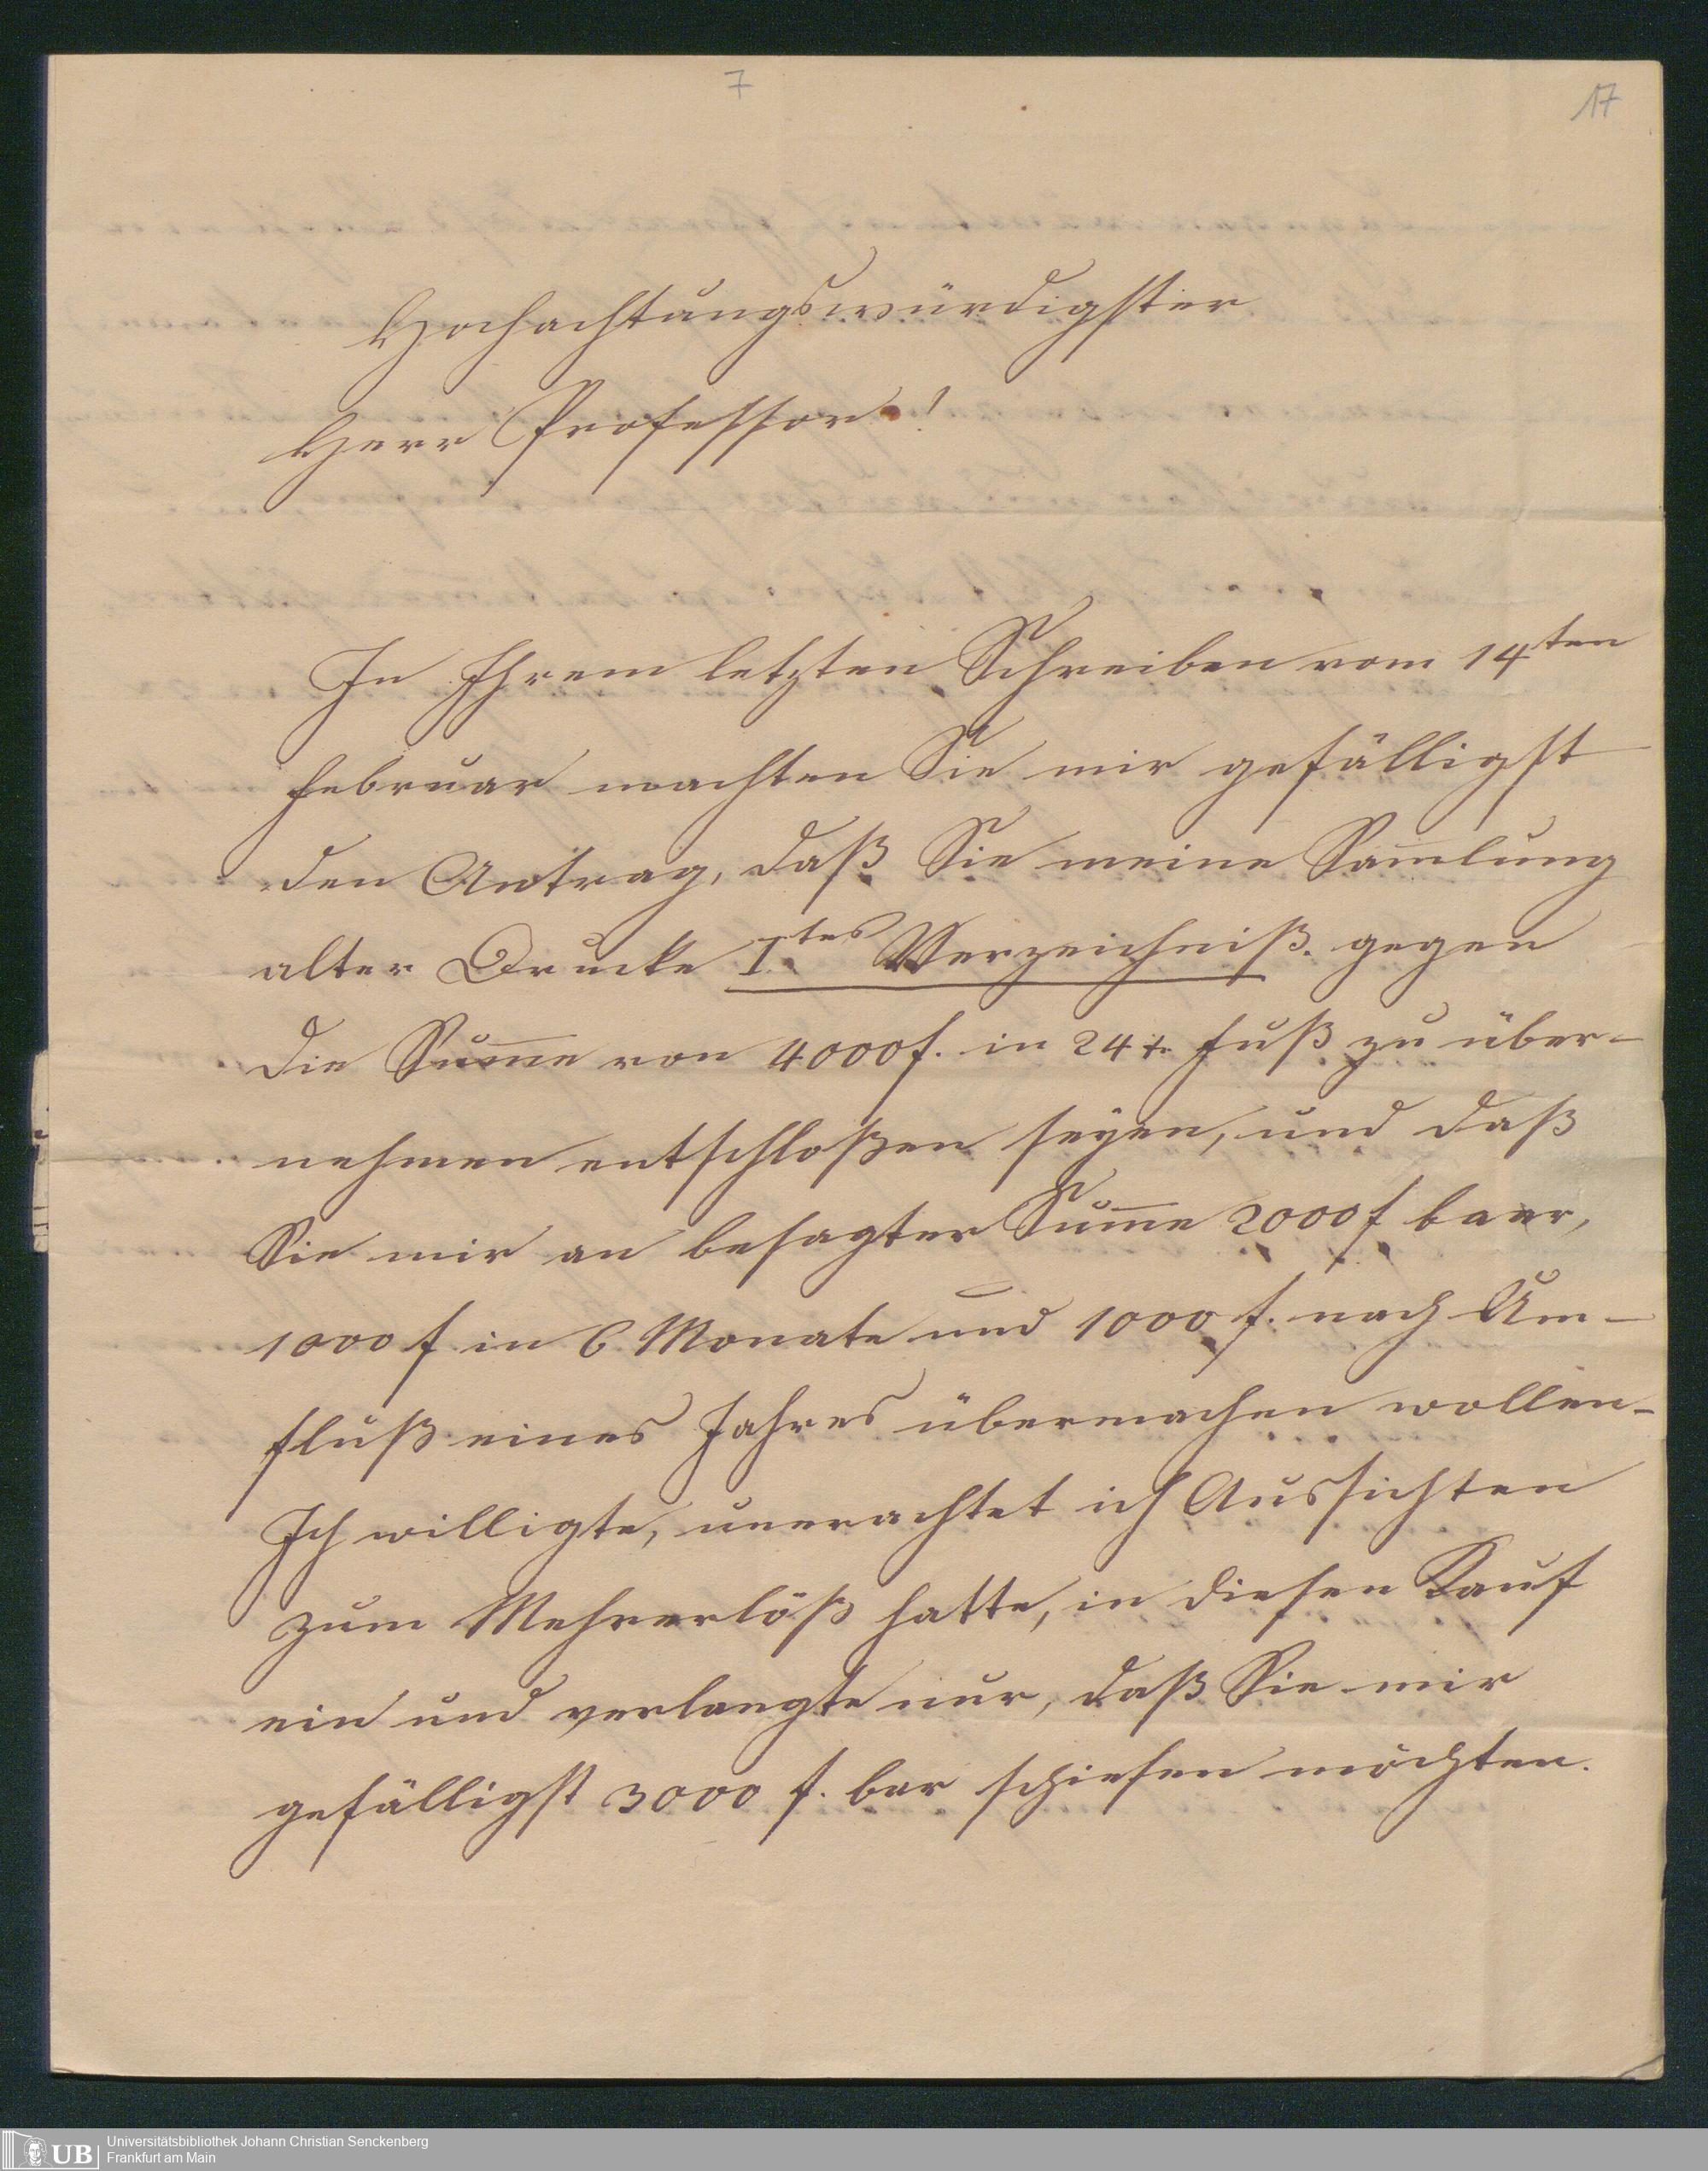 7
17
Hochachtungswürdigster
Herr Professor!
In Ihrem letzten Schreiben vom 14ten
Februar machten Sie mir gefälligst
den Antrag, daß Sie meine Sam̄lung
alter Drucke Ites Verzeichniß. gegen
die Sum̄e von 4000 f. in 24 r. Fuß zu über-
nehmen entschloßen seyen, und daß
Sie mir an besagter Sum̄e 2000 f baar,
1000 f in 6 Monate und 1000 f. nach Um-
fluß eines Jahres übermachen wollen-
Ich willigte, unerachtet ich Aussichten
zum Mehrerlöß hatte, in diesen Kauf
ein und verlangte nur, daß Sie mir
gefälligst 3000 f. bar schießen möchten.
UB
Universitätsbibliothek Johann Christian Senckenberg
Frankfurt am Main